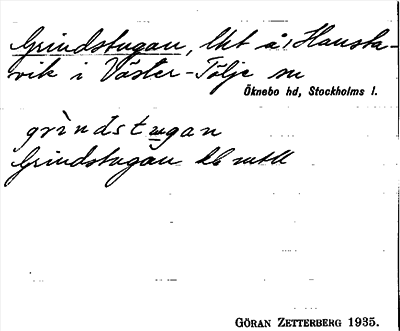 Grindstugan, lht å Hauska-
vik i Väster-Tälje sn
Öknebo hd, Stockholms l.
grìndstugan
Grindstugan
GÖRAN ZETTERBERG 1935.